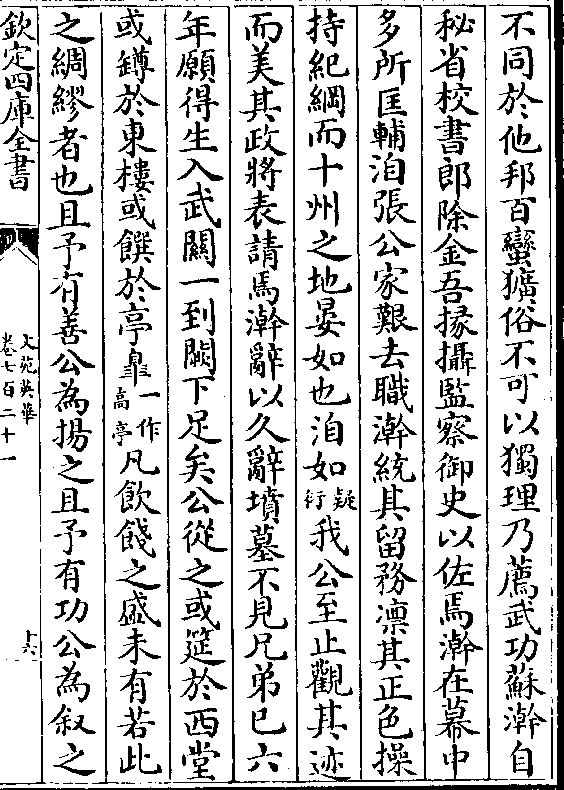 不同於他邦百蠻獷俗不可以獨理乃薦武功蘇澣自
秘省校書郎除金吾掾攝監察御史以佐焉澣在幕中
多所匡輔洎張公家艱去職澣統其留務凛其正色操
持紀綱而十州之地晏如也洎如疑衍我公至止觀其迹
而美其政將表請焉澣辭以久辭墳墓不見兄弟已六
年願得生入武關一到闕下足矣公從之或筵於西堂
或罇於東樓或饌於亭皐一作高亭凡飲餞之盛未有若此
之綢繆者也且予有善公為揚之且予有功公為叙之
欽定四庫全書
文苑英華
卷七百二十一
十六